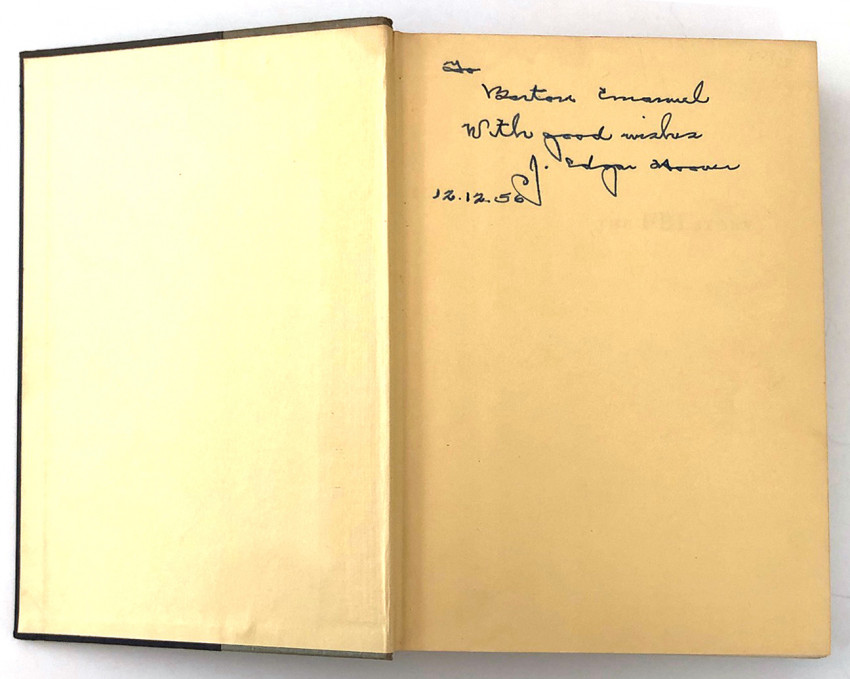 To
Barton Emanuel
With good wishes
J. Edgar Hoover
12.12.56